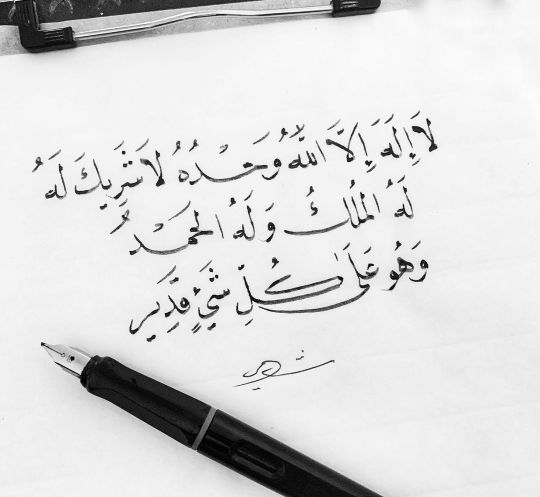 لَا إِلَهَ إِلَّا اللَّهُ وَحْدَهُ لَا شَرِيكَ لَهُ
لَهُ الْمُلْكُ وَلَهُ الْحَمْدُ
وَهُوَ عَلَى كُلِّ شَيْءٍ قَدِير